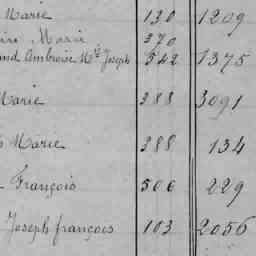 Marie 130 1209
Marie 370
Ambroise Me Joseph 542 1375
Marie 388 3091
Marie 388 134
François 506 229
Joseph françois 103 2056